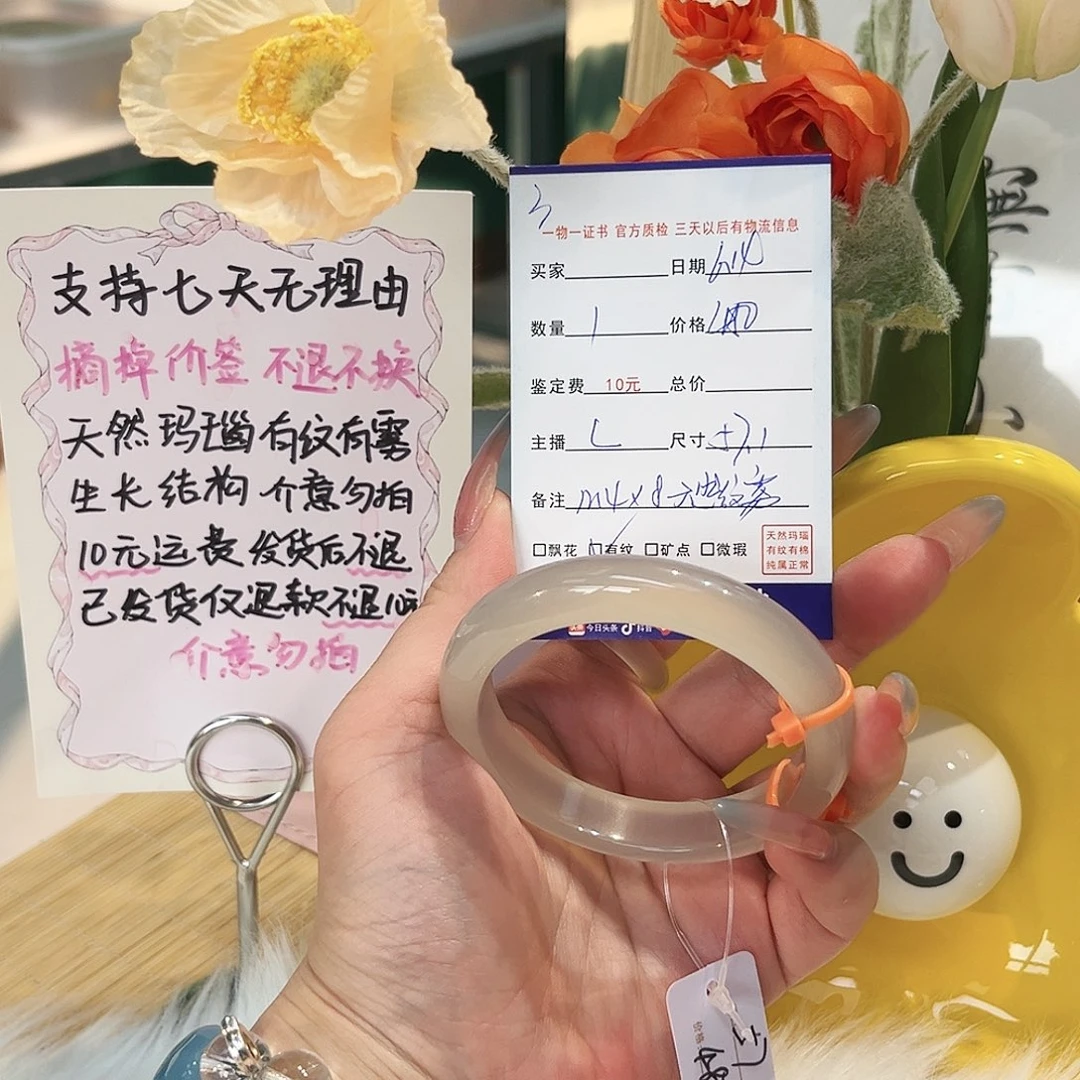 支持七天无理由
摘掉价签 不退不换
天然玛瑙有纹有雾
生长结构 介意勿拍
10元运费发货后不退
已发货仅退款不退10元
介意勿拍
一物一证书 官方质检 三天以后有物流信息
买家 日期
数量 1 价格
鉴定费 10元 总价
主播 L 尺寸 57.1
备注
飘花 有纹 矿点 微瑕
天然玛瑙
有纹有棉
纯属正常
今日头条 抖音
無